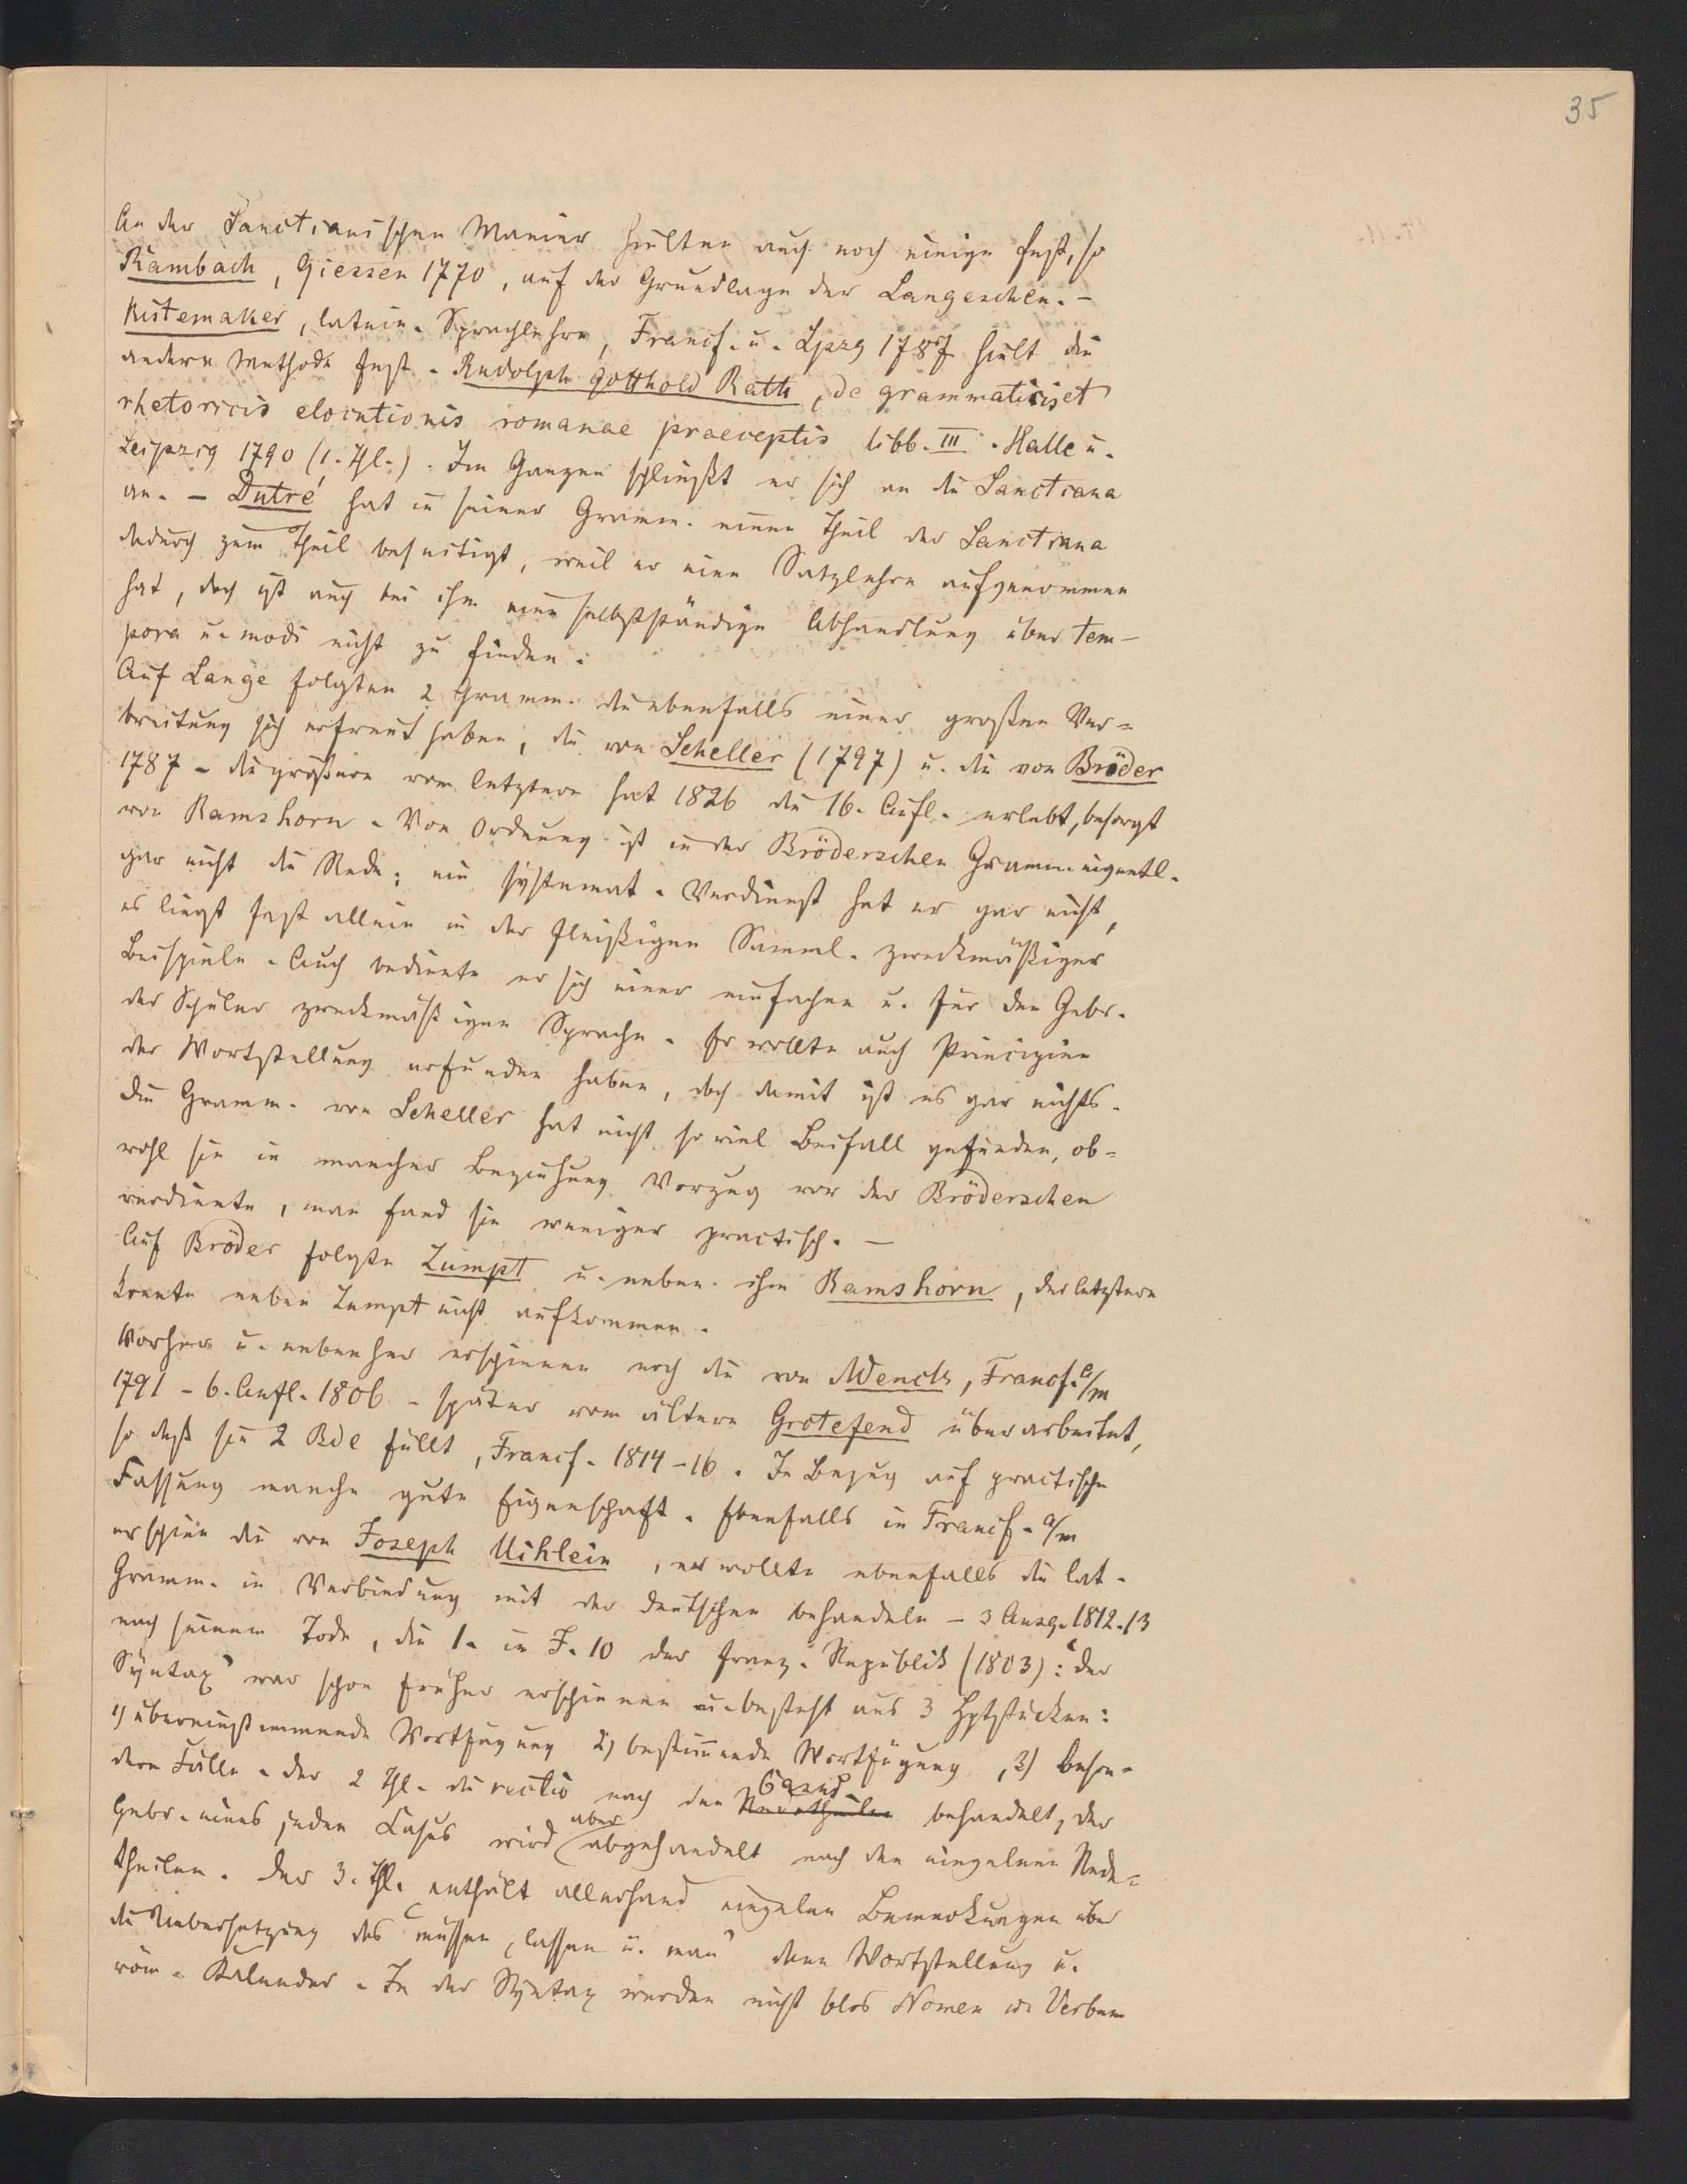 35
An der Sanctianischen Manier hielten auch noch einige fest, so
Rambach, Giessen 1770, auf der Grundlage der Langeschen. –
Kistemaker, latein. Sprachlehre, Francf. u. Lpzg 1787 hielt die
andere Methode fest. Rudolph Gotthold Rath, de grammaticis et
rhetoricis elocutionis romanae praeceptis libb. III. Halle u.
Leipzig 1790 (1. Thl.). Im Ganzen schließt er sich an die Sanctiana
an. – Dutré hat in seiner Gramm. einen Theil der Sanctiana
dadurch zum Theil beseitigt, weil er eine Satzlehre aufgenommen
hat, doch ist auch bei ihm eine selbstständige Abhandlung über tem-
pora u. modi nicht zu finden.
Auf Lange folgten 2 Gramm. die ebenfalls einer großen Ver=
breitung sich erfreut haben, die von Scheller (1797) u. die von Bröder
1787 – die größere vom letztern hat 1826 die 16. Aufl. erlebt, besorgt
von Ramshorn. Von Ordnung ist in der Bröderschen Gramm. eigentl.
gar nicht die Rede; ein systemat. Verdienst hat er gar nicht,
es liegt fast allein in der fleißigen Samml. zweckmäßiger
Beispiele. Auch bediente er sich einer einfachen u. für den Gebr.
der Schüler zweckmäßigen Sprache. Er wollte auch Principien
der Wortstellung erfunden haben, doch damit ist es gar nichts.
Die Gramm. von Scheller hat nicht so viel Beifall gefunden, ob=
wohl sie in mancher Beziehung Vorzug vor der Bröderschen
verdiente, man fand sie weniger practisch. –
Auf Bröder folgte Zumpt u. neben ihm Ramshorn, der letztere
konnte neben Zumpt nicht aufkommen.
Vorher u. nebenher erschienen noch die von Wenck, Francf. a/m
1791 – 6. Aufl. 1806 – später vom ältern Grotefend überarbeitet,
so daß sie 2 Bde füllt, Francf. 1814–16. In Bezug auf practische
Fassung manche gute Eigenschaft. Ebenfalls in Francf. a/m
erschien die von Joseph Uihlein, er wollte ebenfalls die lat.
Gramm. in Verbindung mit der deutschen behandeln – 3 Ausg. 1812.13
nach seinem Tode, die 1. in J. 10 der franz. Republik (1803): "der
Syntax" war schon früher erschienen u. besteht aus 3 Hptstücken:
1) übereinstimmende Wortfügung 2) bestimmende Wortfügung, 3) beson-
dere Fälle. Der 2 Thl. die rectio nach den Casus Redetheilen behandelt, der
Gebr. eines jeden Casus wird aber abgehandelt nach den einzelnen Rede=
theilen. Der 3. Thl. enthält allerhand einzelne Bemerkungen über
die Uebersetzung des "müssen, lassen u. man" dann Wortstellung u.
röm. Kalender. In der Syntax werden nicht blos Nomen u. Verbum